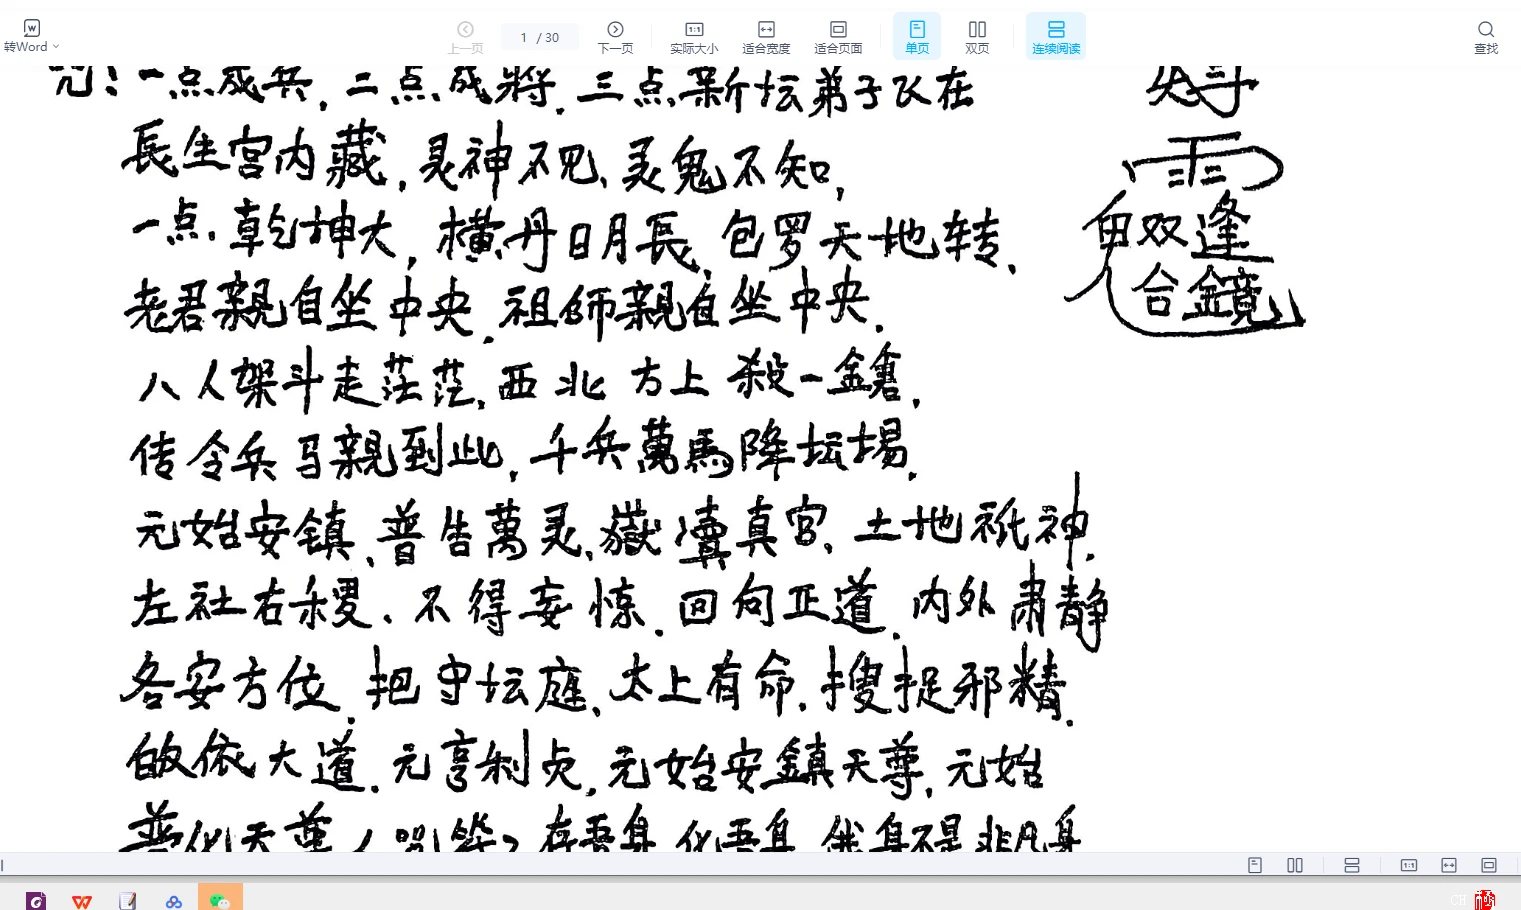 转Word
上一页
1 / 30
下一页
实际大小
适合宽度
适合页面
单页
双页
连续阅读
查找
咒：一点成兵，二点成將，三点新坛弟子飞在
長生宮内藏，灵神不见、灵鬼不知，
一点乾坤大，横丹日月長，包罗天地转，
老君親自坐中央，祖師親自坐中央，
八人架斗走茫茫，西北方上殺一
传令兵马親到此，千兵萬馬降坛場，
元始安镇、普告萬灵、嶽瀆真官、土地祇神，
左社右稷、不得妄惊，回向正道，内外肃静
各安方位，把守坛庭、太上有命，搜捉邪精，
皈依大道，元亨利贞，元始安鎮天尊，元始
普化天尊（咒毕）在吾身，化吾身，俄身不是非凡身
雨
双逢
合
1:1
CH